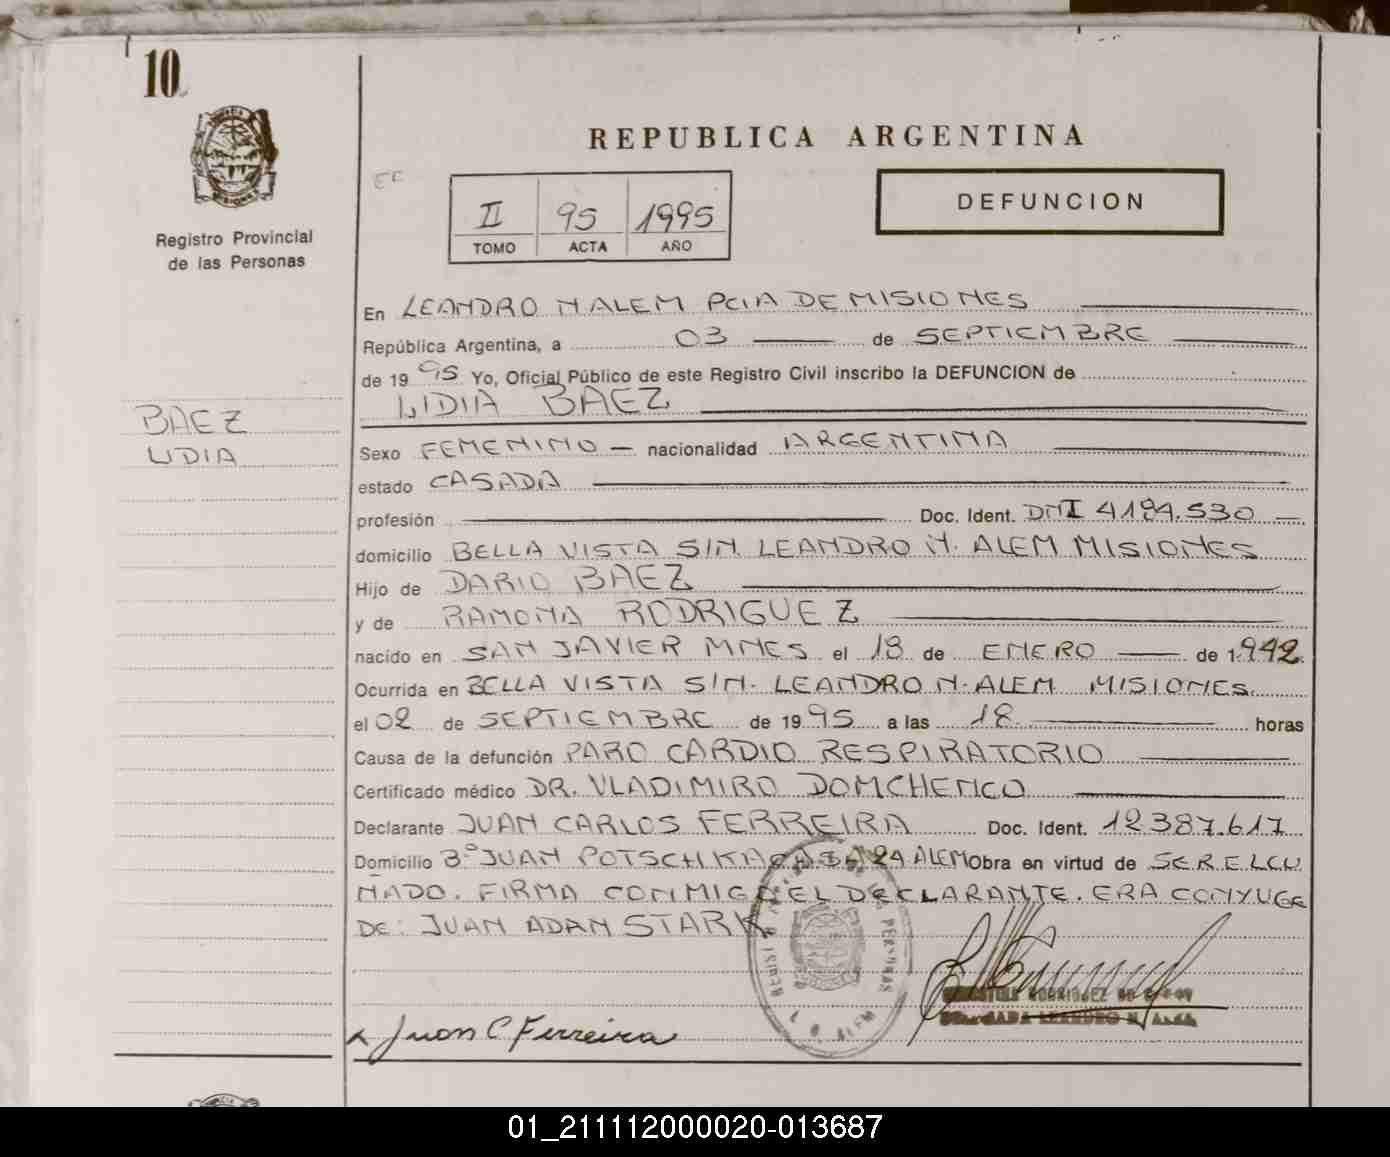 10
REPUBLICA ARGENTINA
DEFUNCION
II 95 1995
TOMO ACTA AÑO
Registro Provincial
de las Personas
BAEZ
LIDIA
En LEANDRO N ALEM PCIA DE MISIONES
República Argentina, a 03 de SEPTIEMBRE
de 19 95 Yo, Oficial Público de este Registro Civil inscribo la DEFUNCION de
LIDIA BAEZ
Sexo FEMENINO — nacionalidad ARGENTINA
estado CASADA
profesión Doc. Ident. DNI 4.194.530 —
domicilio BELLA VISTA S/N. LEANDRO N. ALEM MISIONES
Hijo de DARIO BAEZ
y de RAMONA RODRIGUEZ
nacido en SAN JAVIER MNES el 18 de ENERO de 1.942.
Ocurrida en BELLA VISTA S/N. LEANDRO N. ALEM MISIONES.
el 02 de SEPTIEMBRE de 19 95 a las 18 horas
Causa de la defunción PARO CARDIO RESPIRATORIO
Certificado médico DR. VLADIMIRO DOMCHENCO
Declarante JUAN CARLOS FERREIRA Doc. Ident. 12.387.617
Domicilio Bº JUAN 24 ALEM Obra en virtud de SER EL CU
ÑADO. FIRMA CONMIGO EL DECLARANTE. ERA CONYUGE
DE: JUAN ADAN STARK
PERSONAS
L. N. ALEM
RODRIGUEZ DE
LEANDRO N. ALEM
Juan C Ferreira
01_211112000020-013687